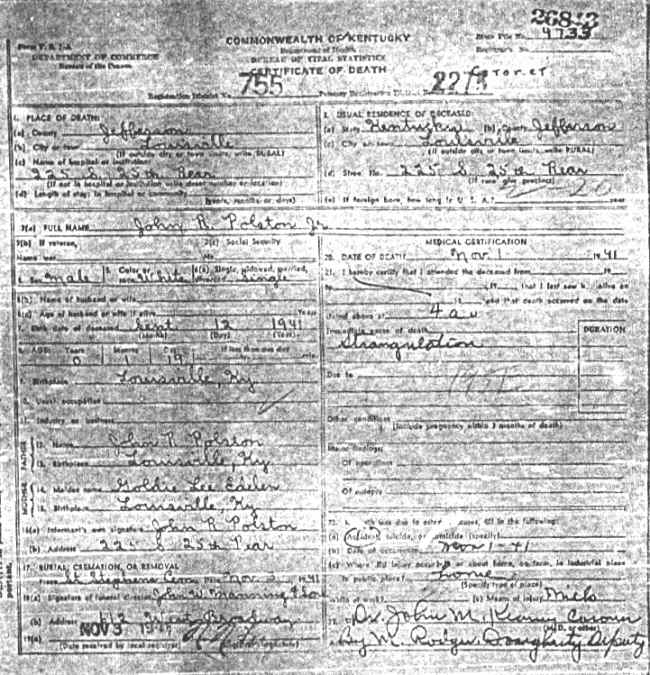 26843
Form V. S. 1-A
COMMONWEALTH OF KENTUCKY
State File No. 4733
DEPARTMENT OF COMMERCE
Department of Health
Registrar's No.
Bureau of the Census
BUREAU OF VITAL STATISTICS
CERTIFICATE OF DEATH
Registration District No. 755 Primary Registration District
1. PLACE OF DEATH:
(a) County Jefferson
(b) City or town Louisville
(If outside city or town limits, write RURAL)
(c) Name of hospital or institution
225 S. 25th Rear
(If not in hospital or institution write street number or location)
(d) Length of stay: In hospital or community
(years, months or days)
2. USUAL RESIDENCE OF DECEASED:
(a) State Kentucky (b) County Jefferson
(c) City or town Louisville
(If outside city or town limits, write RURAL)
(d) Street No. 225 S. 25th Rear
(If rural give precinct)
(e) If foreign born, how long in U. S. A.? year
3(a) FULL NAME John R. Polston Jr.
3(b) If veteran,
3(c) Social Security
Name war
No.
4. Sex Male 5. Color or race White 6(a) Single, widowed, married, divorced Single
6(b) Name of husband or wife
6(c) Age of husband or wife if alive Years
7. Birth date of deceased Sept 12 1941
(Month) (Day) (Year)
8. AGE: Years Months Days If less than one day
0 1 19
9. Birthplace Louisville, Ky
10. Usual occupation
11. Industry or business
FATHER
12. Name John R. Polston
13. Birthplace Louisville, Ky
MOTHER
14. Maiden name Goldie Lee
15. Birthplace Louisville, Ky
16(a) Informant's own signature John R. Polston
(b) Address 225 S. 25th Rear
17. BURIAL, CREMATION, OR REMOVAL
St. Stephens Cem Date Nov. 1941
18(a) Signature of funeral director John W. Manning & Son
(b) Address Broadway
19(a) NOV 3
(Date received by local registrar)
MEDICAL CERTIFICATION
20. DATE OF DEATH Nov 1 1941
21. I hereby certify that I attended the deceased from 19
to 19 that I last saw h alive on
19 and that death occurred on the date
stated above at 4 a
Immediate cause of death
DURATION
Strangulation
Due to
Other conditions
(Include pregnancy within 3 months of death)
Major findings:
Of operations
Of autopsy
22. If death was due to external causes, fill in the following:
(a) Accident, suicide, or homicide (specify)
(b) Date of occurrence Nov 1-41
(c) Where did injury occur in or about home, on farm, in industrial place
in public place? Home
(Specify type of place)
While at work? (e) Means of injury
23. Dr. John M. Coroner
(M.D. or other)
By M. Deputy